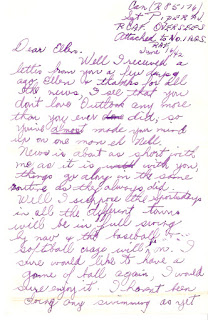 Can/(R85176)
R.C.A.F. OVERSEAS
Attached to No. 1 A.O.S.
R.A.F.
June 16/42
Dear Ellen.
Well I received a
letter from you a few days
ago Ellen & thanks for all
the news, I see that you
don't love Butler any more
than you ever did, so
you've almost made your mind
up on one more Nell.
News is about as short with
me as it is with you,
things go along in the same
routine as they always did.
Well I suppose the Sportsdays
in all the different towns
will be in full swing
by now & the baseball &
softball craze will be on. I
sure would like to have a
game of ball again, I would
sure enjoy it. I haven't been
doing any swimming as yet